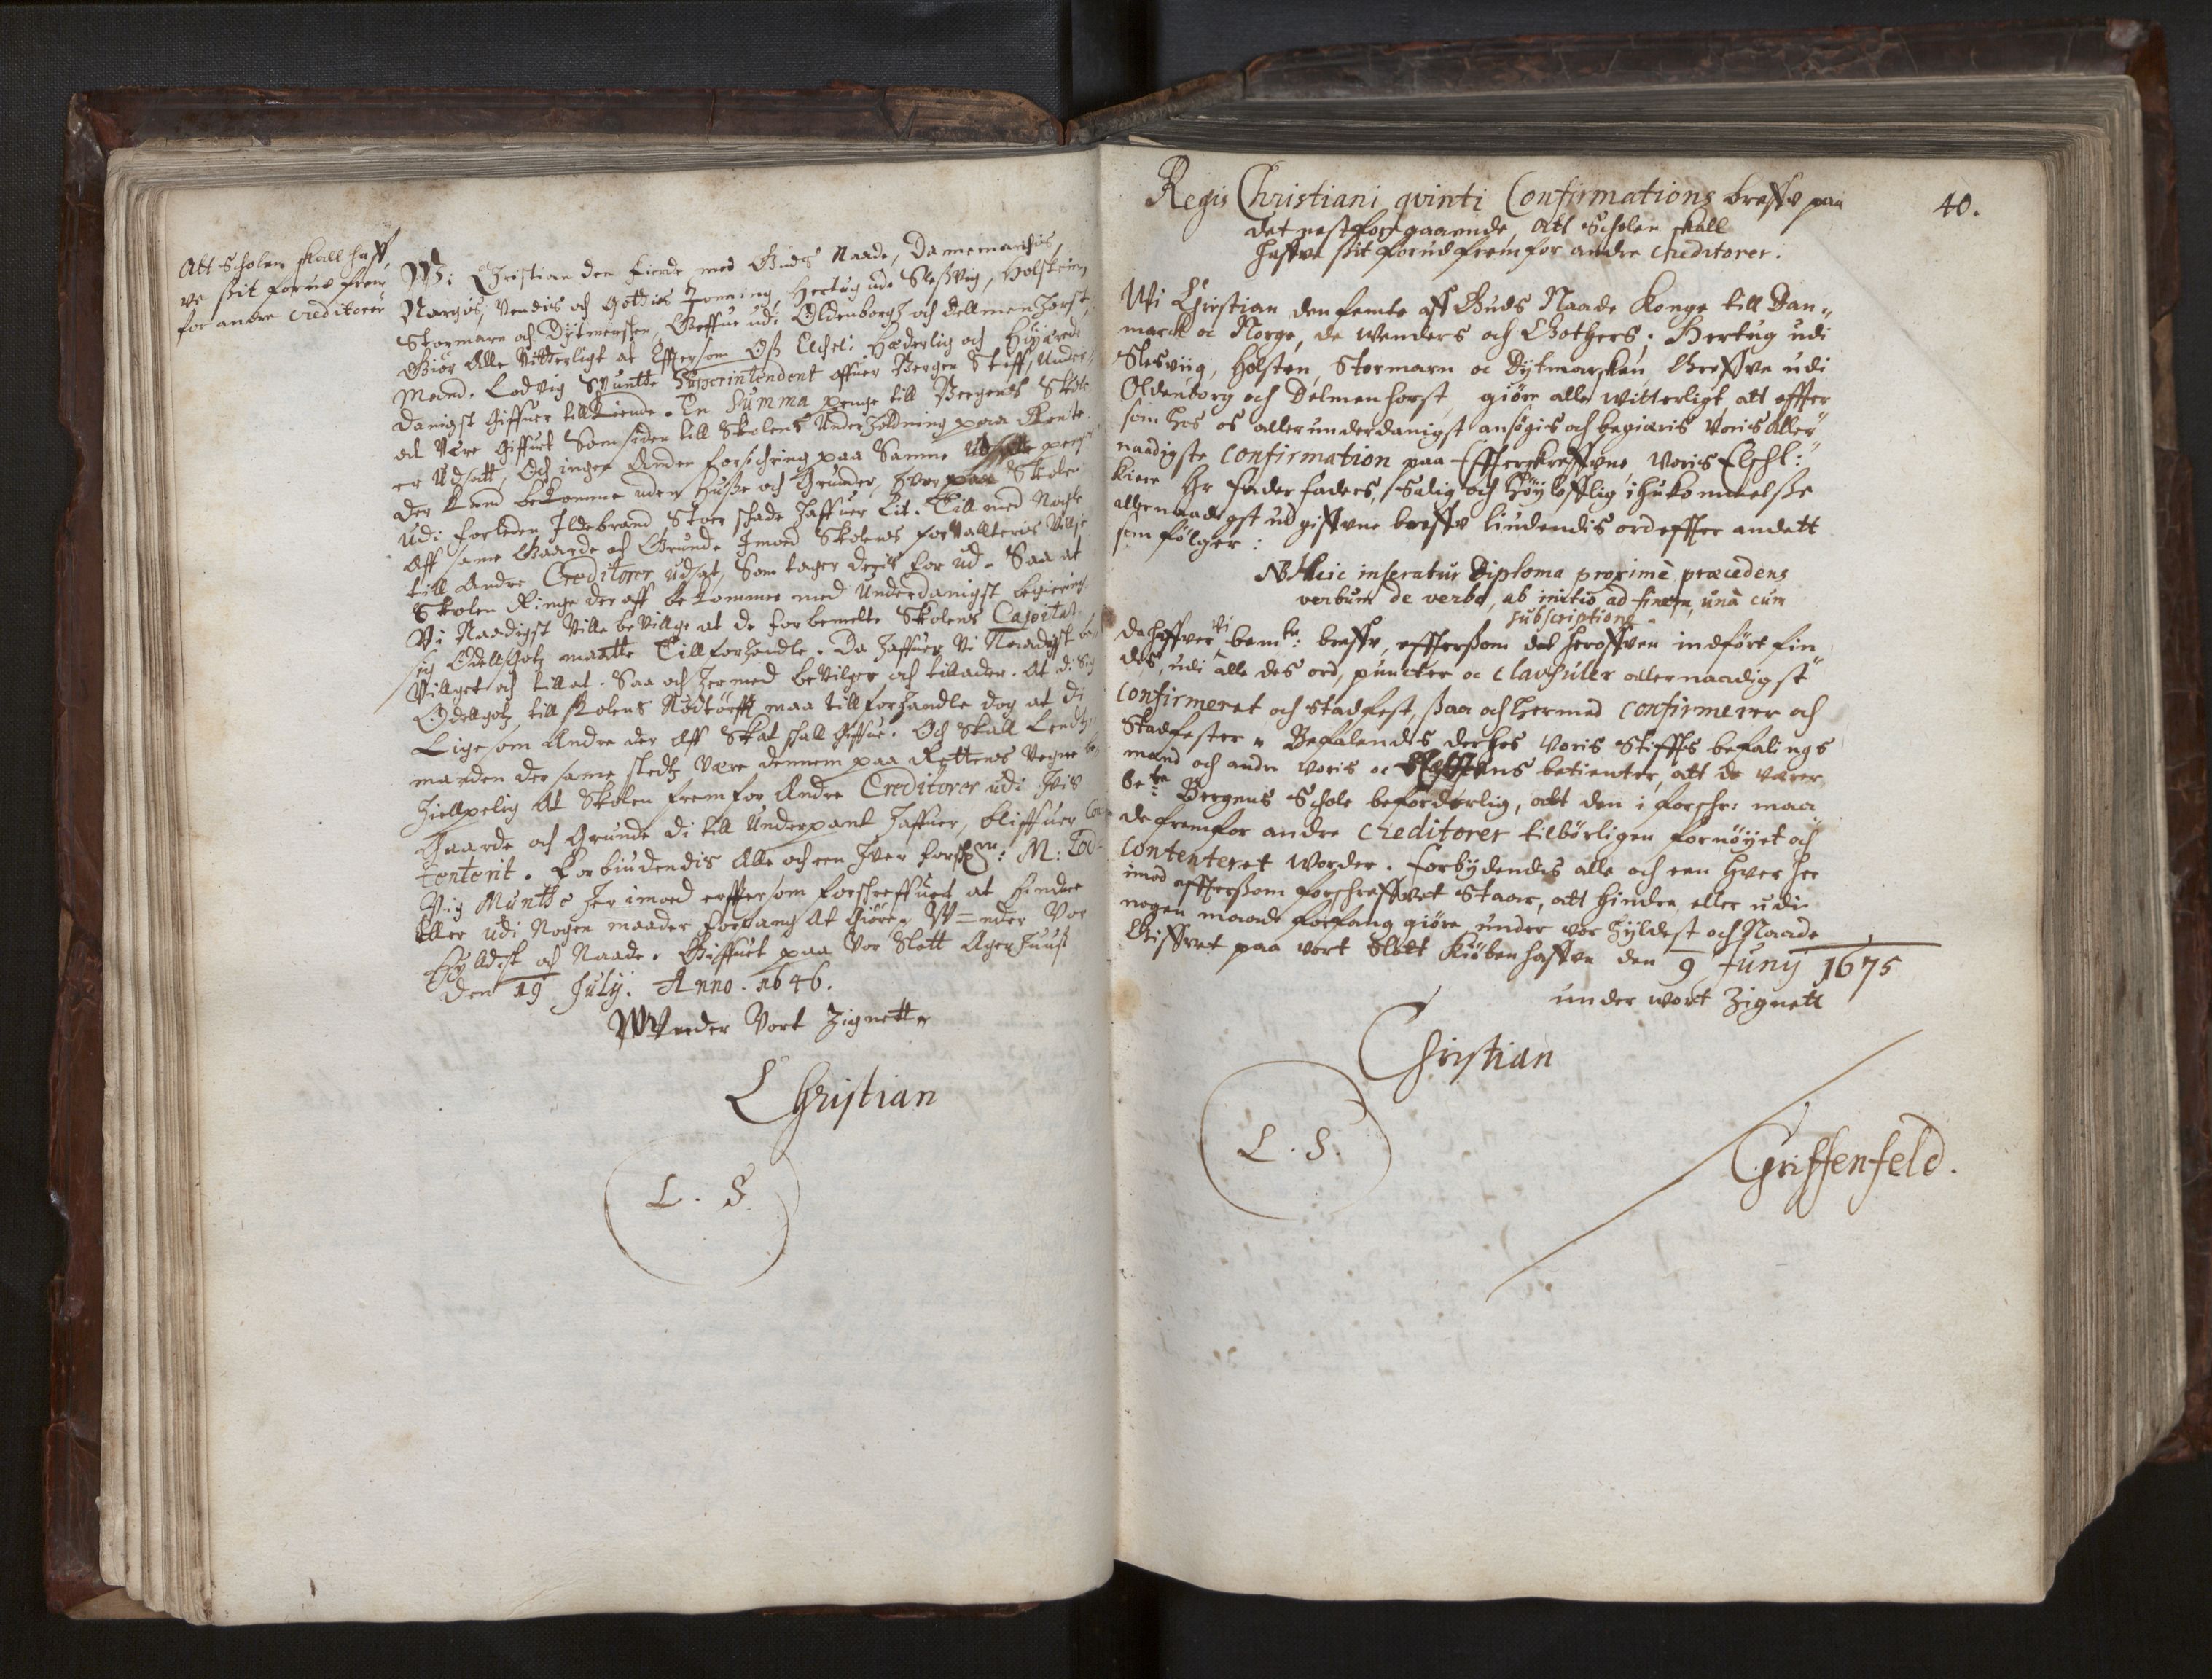 Att Scholen skall haff„
ve sit forud frem
for andre Creditorer
Wi Christian den Fierde med Guds Naade, Dannemarchis,
Norgis, Vendis och Gottis Konning, Hertug udi Slesvig, Holstein,
Stormarn och Dytmersken, Greffue udi Oldenborg och Delmenhorst,
Giör Alle Vitterligt at Effter som Oss Elskel: Hæderlig och Höjlærde
Mand. Lodvig Munthe Superintendent offuer Bergen Stifft, Under„
danigst Giffuer tillkiende. En Summa penge till Bergens Skole
at Være Giffuet Som siden till Skolens Underholdning paa Rente
er Udsatt, Och ingen Anden forsichring paa Samme penge
der kand bekomme uden Husse och Grunder, Hvor paa Skolen
udi forleden Ildebrand Stoer schade haffuer Lit. Till med Nogle
Aff same Gaarde och Grunde Imoed Skolens forvallteris Villje
till Andre Creditorer udsat, Som tager deris for ud. Saa at
Skolen Ringe der aff bekommer med Underdanigst begiering
Vi Naadigst Ville beVillge at de forbemelte Skolens Capital
sig Odellgotz maatte Tillforhandle. Da haffuer Vi Naadigst be„
Villget och tillat. Saa och hermed beVilger och tillader. At di Sig
Odellgotz till skolens Nödtörfft maa tillforhandle dog at di
Lige som Andre der Aff Skat skall Giffue. Och Skall Lendtz„
manden der samme stedtz Være dennem paa Rettens Vegne be„
hielpelig At Skolen frem for Andre Creditorer udi Hvis
Gaarde och Grunde di till Underpant haffuer, bliffuer Con
tenterit. Forbiudendis Alle och een Hver forsch: M: Lod„
vig Munthe her imoed effter som forschreffuet at Hindre
Eller udi Nogen maader forfang At Giöre. Under Vor
Hyldist och Naade. Giffuet paa Vor Slott AgersHuus
Den 19 July. Anno. 1646.
Under Vort Zignett
Christian
L. S.
40.
Regis Christiani qvinti Confirmations breffv paa
det nestforegaaende, Att Scholen skall
haffve sit forud frem for andre Creditorer.
Wi Christian den femte aff Guds Naade Konge till Dan„
marck oc Norge, de Wenders och Gothers, Hertug udi
Slesviig, Holsten, Stormarn oc Dytmarsken, Greffve udi
Oldenborg och Delmenhorst, giöre alle witterligt att effter
som hos os allerunderdanigst ansögis och begiæris Voris Aller„
naadigste Confirmation paa Effterskreffvne Voris Elschl:
kiere Hr Faderfaders, Salig och Höyloflig ihukommelsse
allernaadigst udgiffvne breffv liudendis ord effter andett
som fölger:
NB Huic inseratur Diploma proximè præcedens
verbum de verbo, ab initio ad finem, unà cum
subscriptione.
Da haffver Vi bem.te breffv, effterssom det heroffven indfört fin„
des, udi alle des ord, puncter oc Clausuler allernaadigst
Confirmeret och stadfest, saa och hermed Confirmerer och
Stadfester. Befalendis derhos Voris Stiffts befalings
mand och andre Voris oc betienter, att de være
be.te Bergens Schole beforderlig, att den i forschr: maa„
de fremfor andre Creditorer tilbörligen fornöyet och
Contenteret worder. Forbydendis alle och een hver her
imod effterssom forschreffvet Staar, att hindre eller udi
nogen maade forfang giöre under vor hyldest och Naade
Giffvet paa vort Slott Kiöbenhaffvn den 9 Juny 1675
under wort Zignett
Christian
L. S.
Griffenfeld.